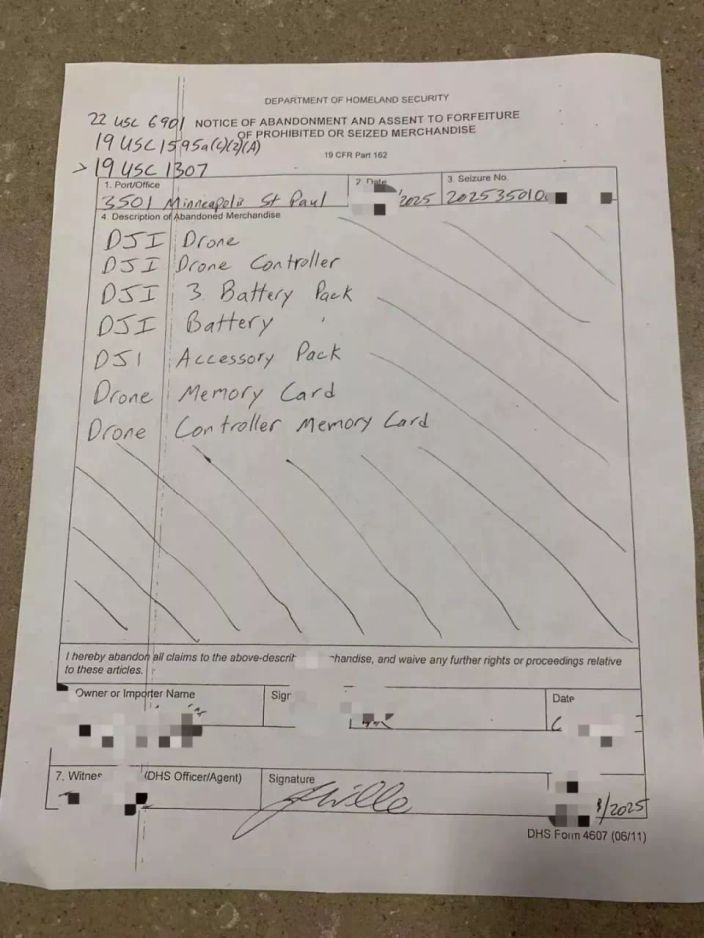 DEPARTMENT OF HOMELAND SECURITY
22 USC 6901
NOTICE OF ABANDONMENT AND ASSENT TO FORFEITURE
OF PROHIBITED OR SEIZED MERCHANDISE
19 USC 1595a(c)(2)(A)
19 CFR Part 162
> 19 USC 1307
1. Port/Office
3501 Minneapolis St Paul
2. Date
2025
3. Seizure No.
202535010
4. Description of Abandoned Merchandise
DJI Drone
DJI Drone Controller
DJI 3 Battery Pack
DJI Battery
DJI Accessory Pack
Drone Memory Card
Drone Controller Memory Card
I hereby abandon all claims to the above-descri handise, and waive any further rights or proceedings relative
to these articles.
Owner or Importer Name
Sign
Date
7. Witnes (DHS Officer/Agent)
Signature
/2025
DHS Form 4607 (06/11)